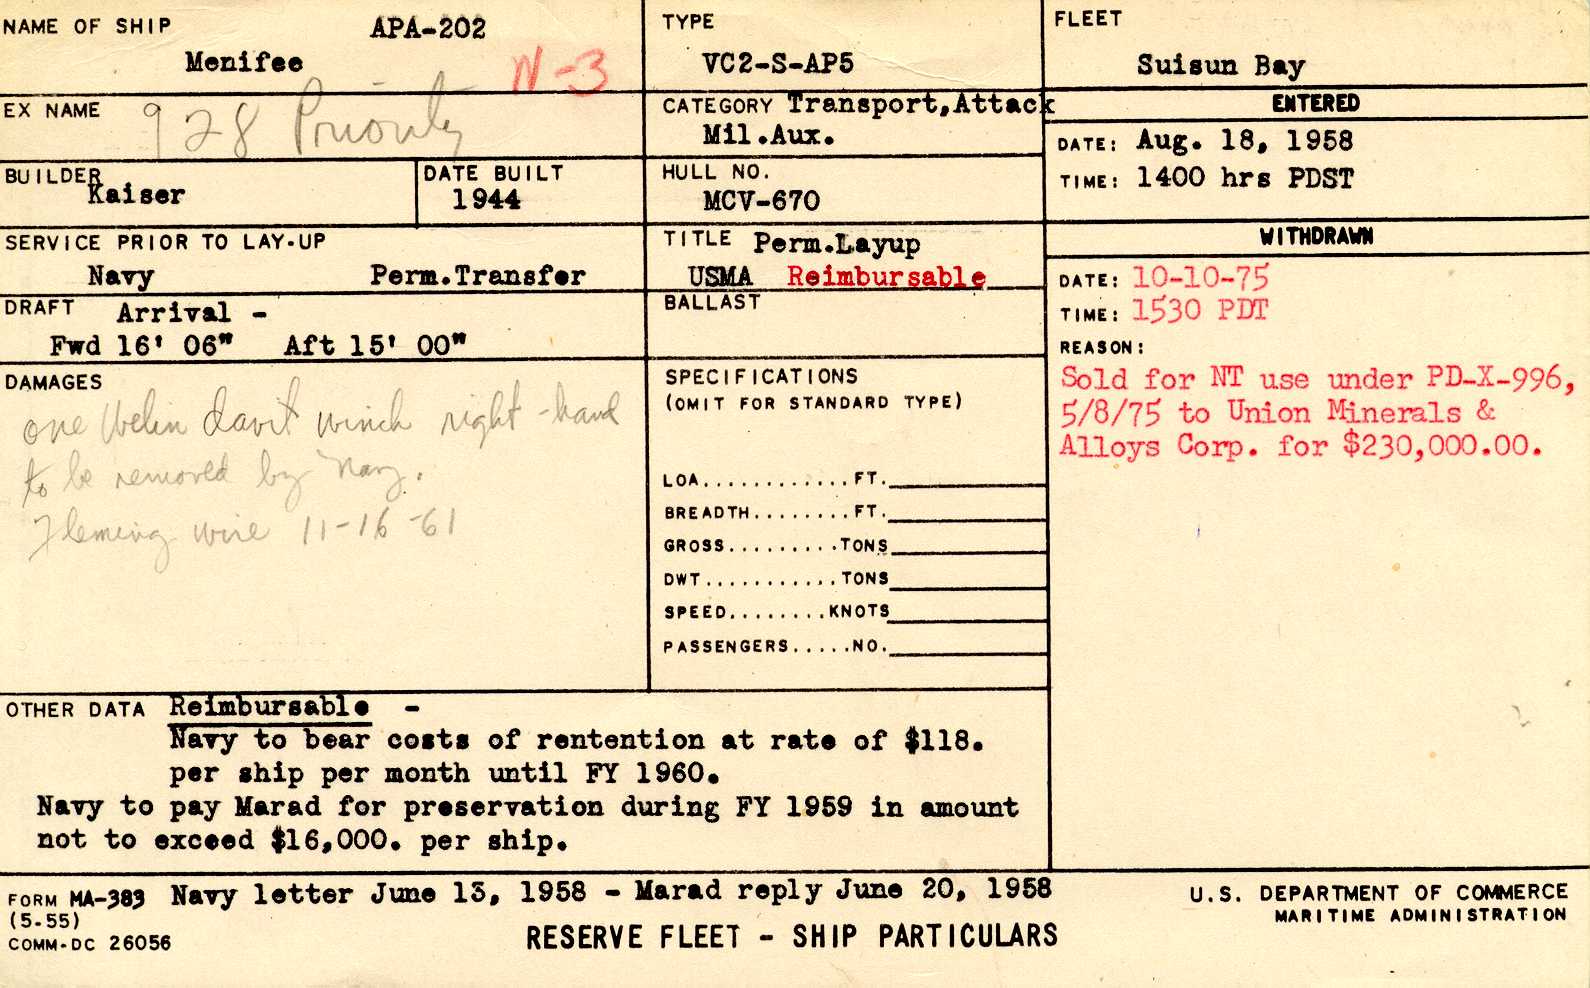 NAME OF SHIP APA-202
Menifee N-3
EX NAME 928 Priority
BUILDER Kaiser
DATE BUILT
1944
SERVICE PRIOR TO LAY-UP
Navy Perm.Transfer
DRAFT Arrival -
Fwd 16' 06" Aft 15' 00"
DAMAGES
one Welin davit winch right-hand
to be removed by Navy.
Fleming wire 11-16-61
TYPE
VC2-S-AP5
CATEGORY Transport,Attack
Mil.Aux.
HULL NO.
MCV-670
TITLE Perm.Layup
USMA Reimbursable
BALLAST
SPECIFICATIONS
(OMIT FOR STANDARD TYPE)
LOA............FT.
BREADTH........FT.
GROSS.........TONS
DWT...........TONS
SPEED........KNOTS
PASSENGERS.....NO.
FLEET
Suisun Bay
ENTERED
DATE: Aug. 18, 1958
TIME: 1400 hrs PDST
WITHDRAWN
DATE: 10-10-75
TIME: 1530 PDT
REASON:
Sold for NT use under PD-X-996,
5/8/75 to Union Minerals &
Alloys Corp. for $230,000.00.
OTHER DATA Reimbursable -
Navy to bear costs of rentention at rate of $118.
per ship per month until FY 1960.
Navy to pay Marad for preservation during FY 1959 in amount
not to exceed $16,000. per ship.
FORM MA-383 Navy letter June 13, 1958 - Marad reply June 20, 1958
(5-55)
COMM-DC 26056
RESERVE FLEET - SHIP PARTICULARS
U.S. DEPARTMENT OF COMMERCE
MARITIME ADMINISTRATION